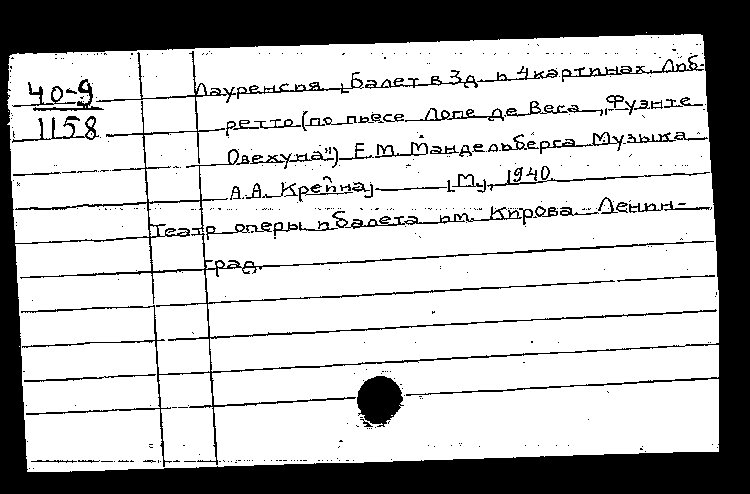 40-9
1158
Лауренсия. [Балет в 3 д. и 4 картинах. Либ-
ретто (по пьесе Лопе де Вега „Фуэнте
Овехуна") Е.М. Мандельберга Музыка
А.А. Крейна]. [М.], 1940.
Театр оперы и балета им. Кирова. Ленин-
град.